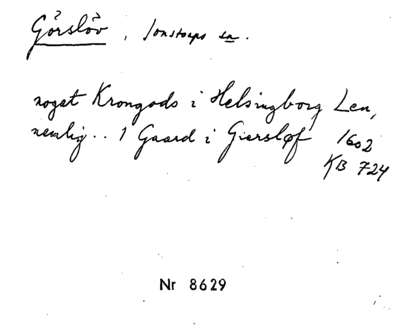 Görslöv, Jonstorps sn.
noget Krongods i Helsingborg Len,
nemlig.. 1 Gaard i Giersløf 1602
KB 724
Nr 8629